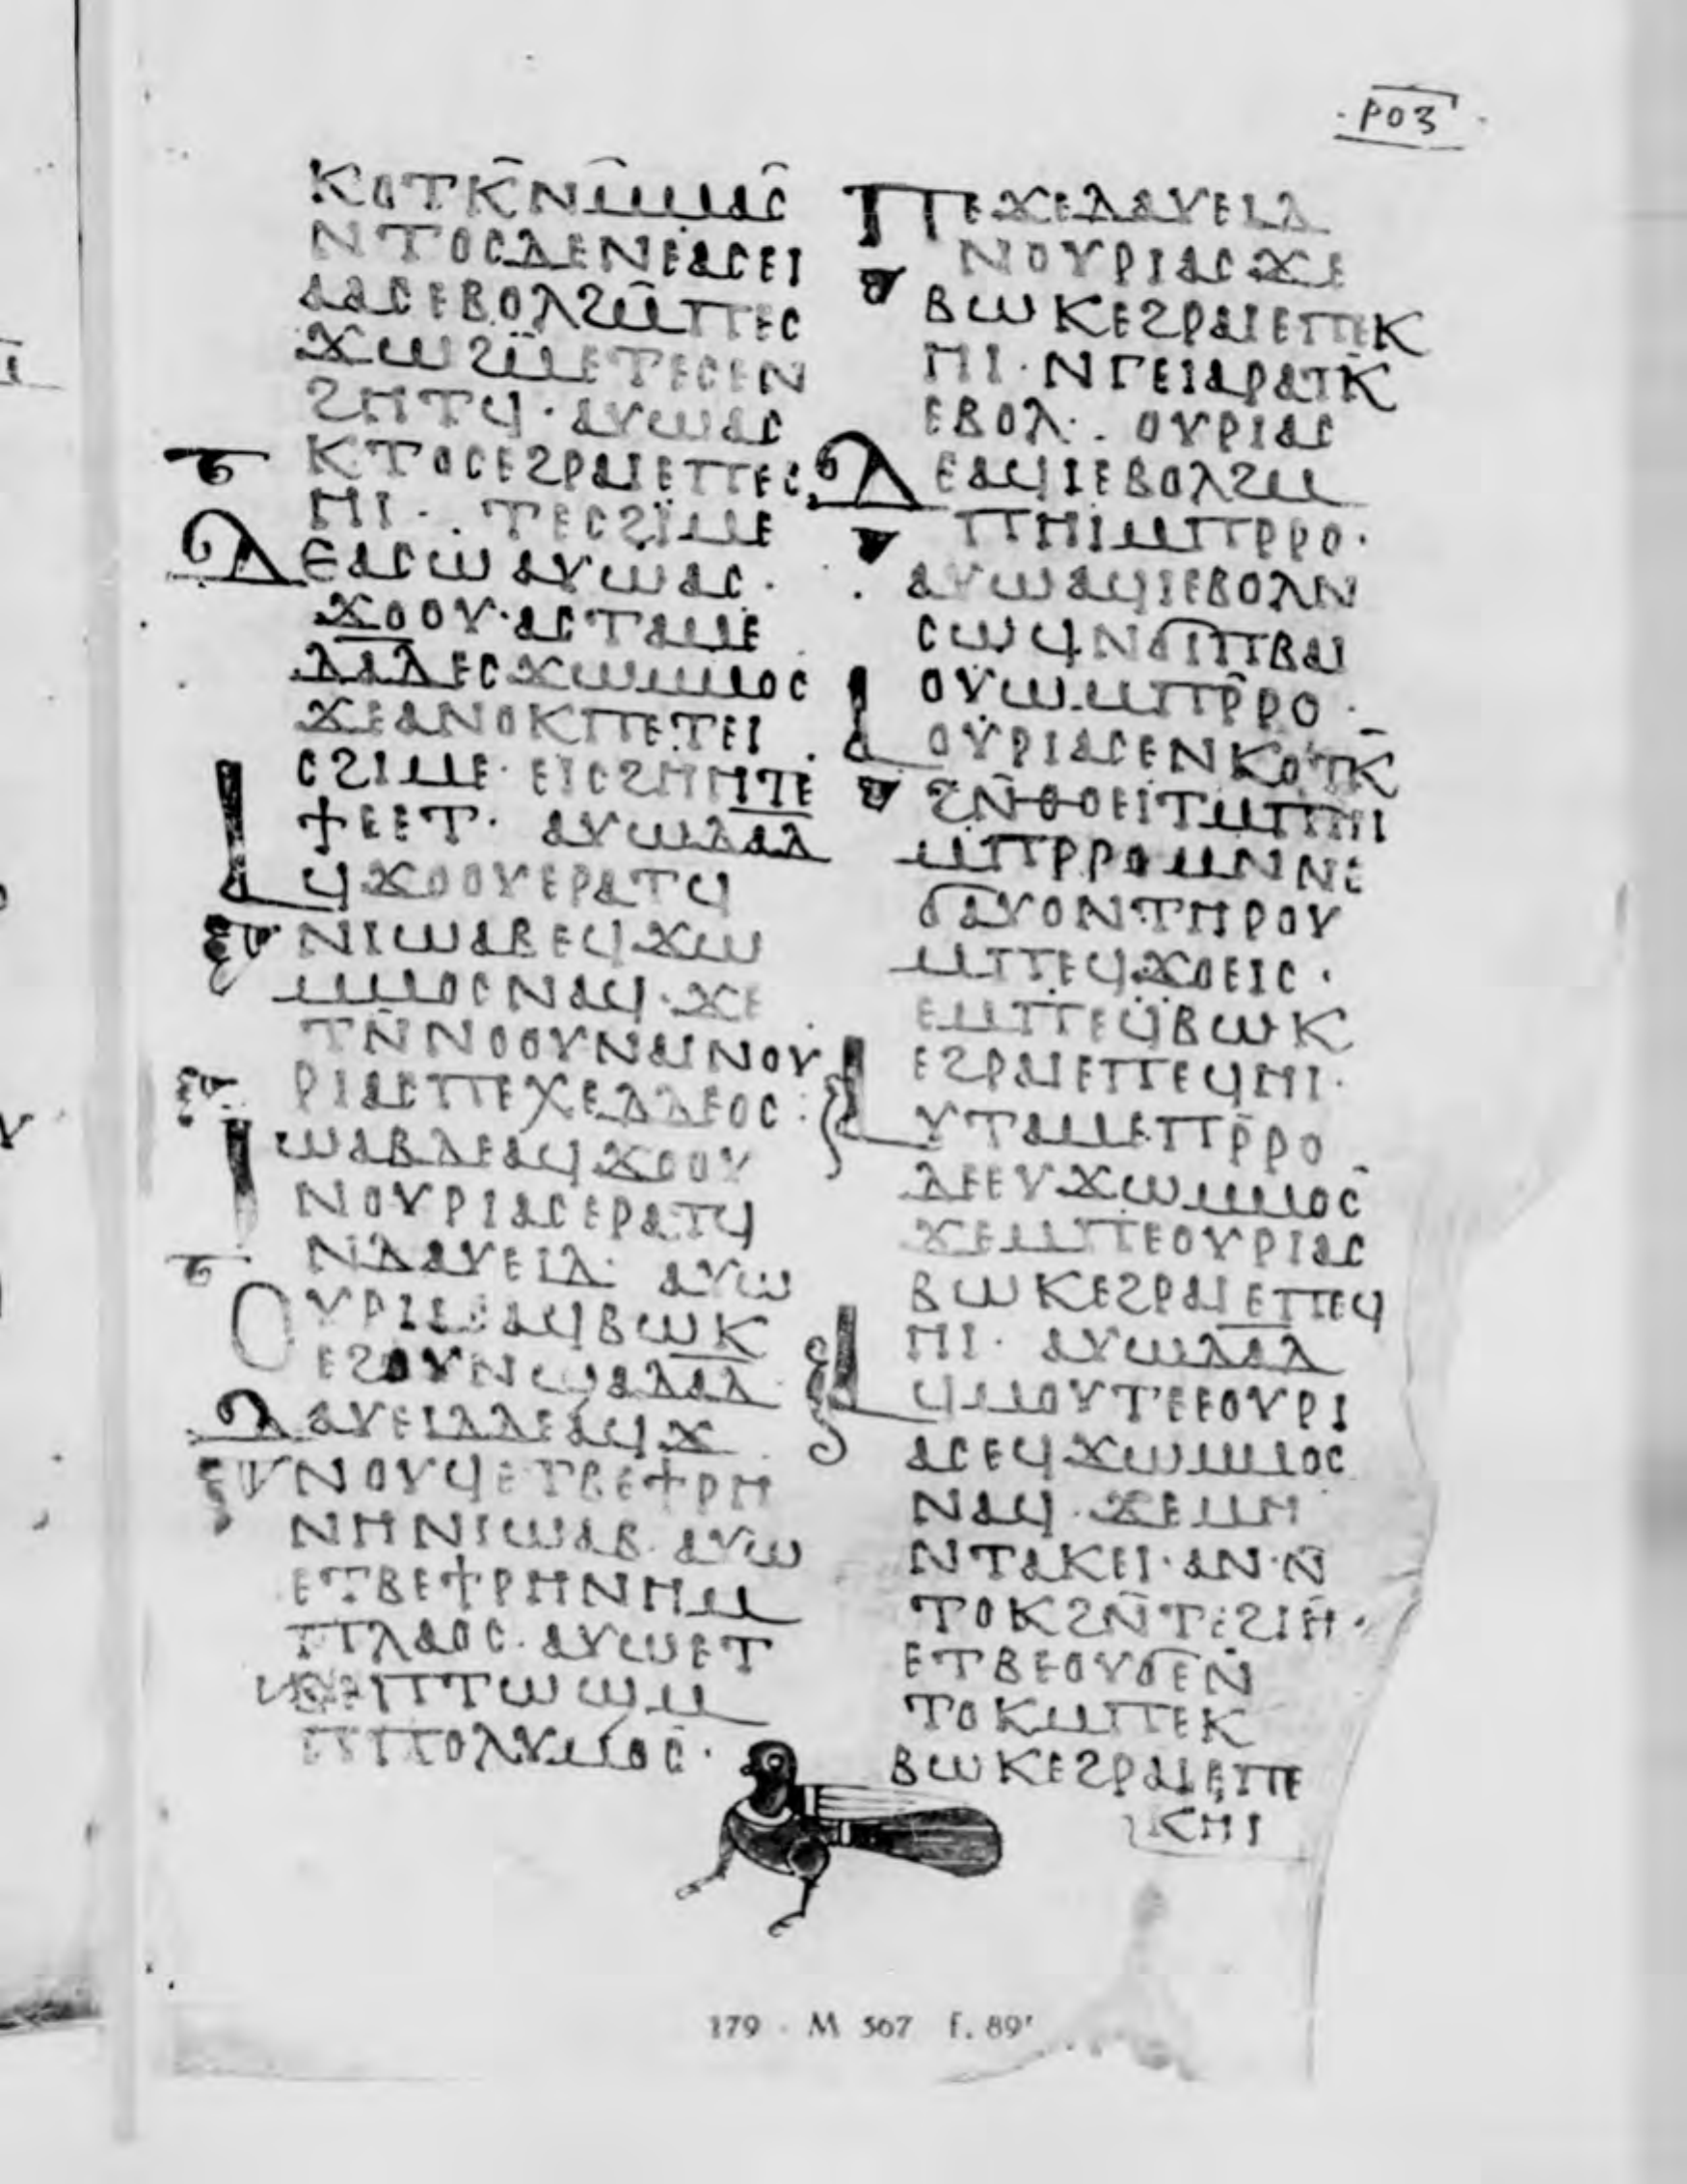 ⲢⲞⲌ
ⲔⲞⲦⲔ̄ⲚⲘ̄ⲘⲀⲤ̄
ⲚⲦⲞⲤⲆⲈⲚⲈⲀⲤⲈⲒ
ⲀⲀⲤⲈⲂⲞⲖϨⲘ̄ⲠⲈⲤ
ϪⲰϨⲘ̄ⲈⲦⲈⲤⲈⲚ
ϨⲎⲦϤ · ⲀⲨⲰⲀⲤ
ⲔⲦⲞⲤⲈϨⲢⲀⲒⲈⲠⲈⲤ
ⲎⲒ · ⲦⲈⲤϨⲒ̈ⲘⲈ
ⲆⲈⲀⲤⲰⲀⲨⲰⲀⲤ ·
ϪⲞⲞⲨ · ⲀⲤⲦⲀⲘⲈ
ⲆⲀⲆⲈⲤϪⲰⲘⲘⲞⲤ
ϪⲈⲀⲚⲞⲔⲠⲈⲦⲈⲒ
ⲤϨⲒⲘⲈ · ⲈⲒⲤϨⲎⲎⲦⲈ
ϮⲈⲈⲦ · ⲀⲨⲰⲆⲀⲆ
ⲀϤϪⲞⲞⲨⲈⲢⲀⲦϤ
ⲚⲒⲰⲀⲂⲈϤϪⲰ
ⲘⲘⲞⲤⲚⲀϤ · ϪⲈ
ⲦⲚ̄ⲚⲞⲞⲨⲚⲀⲒⲚⲞⲨ
ⲢⲒⲀⲤⲠⲈⲬⲈⲆⲆⲈⲞⲤ :
ⲒⲰⲀⲂⲆⲈⲀϤϪⲞⲞⲨ
ⲚⲞⲨⲢⲒⲀⲤⲈⲢⲀⲦϤ
ⲚⲆⲀⲨⲈⲒⲆ · ⲀⲨⲰ
ⲞⲨⲢⲒⲀⲤⲀϤⲂⲰⲔ
ⲈϨⲞⲨⲚϢⲀⲆⲀⲆ
ⲆⲀⲨⲈⲒⲆⲆⲈⲀϤϪ
ⲚⲞⲨϤⲈⲦⲂⲈϮⲢⲎ
ⲚⲎⲚⲒⲰⲀⲂ · ⲀⲨⲰ
ⲈⲦⲂⲈϮⲢⲎⲚⲎⲘ
ⲠⲖⲀⲞⲤ · ⲀⲨⲰⲈⲦ
ⲠⲦⲰϢⲘ
ⲠⲠⲞⲖⲨⲘⲞⲤ̄ ·
ⲠⲈϪⲈⲆⲀⲨⲈⲒⲆ
ⲚⲞⲨⲢⲒⲀⲤϪⲈ
ⲂⲰⲔⲈϨⲢⲀⲒⲈⲠⲈⲔ
ⲎⲒ · ⲚⲄⲈⲒⲀⲢⲀⲦⲔ̄
ⲈⲂⲞⲖ · ⲞⲨⲢⲒⲀⲤ
ⲆⲈⲀϤⲒⲈⲂⲞⲖϨⲘ
ⲠⲎⲒⲘⲠⲢⲢⲞ ·
ⲀⲨⲰⲀϤⲒⲈⲂⲞⲖⲚ
ⲤⲰϤⲚϬⲒⲠⲂⲀⲒ
ⲞⲨⲰⲘⲠⲢ̄ⲢⲞ ·
ⲀⲞⲨⲢⲒⲀⲤⲈⲚⲔⲞⲦⲔ̄
ϨⲚ̄ⲐⲞⲈⲒⲦⲘⲠⲎⲒ
ⲘⲠⲢⲢⲞⲘⲚⲚⲈ
ϬⲀⲨⲞⲚⲦⲎⲢⲞⲨ
ⲘⲠⲈϤϪⲞⲈⲒⲤ ·
ⲈⲘⲠⲈϤⲂⲰⲔ
ⲈϨⲢⲀⲒⲈⲠⲈϤⲎⲒ ·
ⲀⲨⲦⲀⲘⲈⲠⲢ̄ⲢⲞ
ⲆⲈⲈⲨϪⲰⲘⲘⲞⲤ̄
ϪⲈⲘⲠⲈⲞⲨⲢⲒⲀⲤ
ⲂⲰⲔⲈϨⲢⲀⲒⲈⲠⲈϤ
ⲎⲒ · ⲀⲨⲰⲆⲀⲆ
ⲀϤⲘⲞⲨⲦⲈⲈⲞⲨⲢⲒ
ⲀⲤⲈϤϪⲰⲘⲘⲞⲤ
ⲚⲀϤ · ϪⲈⲘⲎ
ⲚⲦⲀⲔⲈⲒ · ⲀⲚ · Ⲛ̄
ⲦⲞⲔϨⲚ̄ⲦⲈϨⲒⲎ ·
ⲈⲦⲂⲈⲞⲨϬⲈⲚ̄
ⲦⲞⲔⲘⲠⲈⲔ
ⲂⲰⲔⲈϨⲢⲀⲒⲈⲠⲈ
ⲔⲎⲒ
179 - M 567 f. 89r